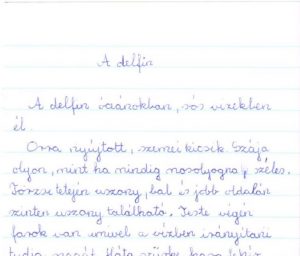 A delfin
A delfin óceánokban, sós vizekben
él.
Orra nyújtott, szemei kicsik. Szája
olyan, mint ha mindig mosolyogna, széles.
Törzse tetején uszony, bal és jobb oldalán
szintén uszony található. Teste végén
farok van amivel a vízben irányítani
tudja magát. Háta szürke, hasa fehér